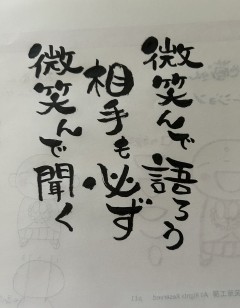 微笑んで語ろう
相手も必ず
微笑んで聞く